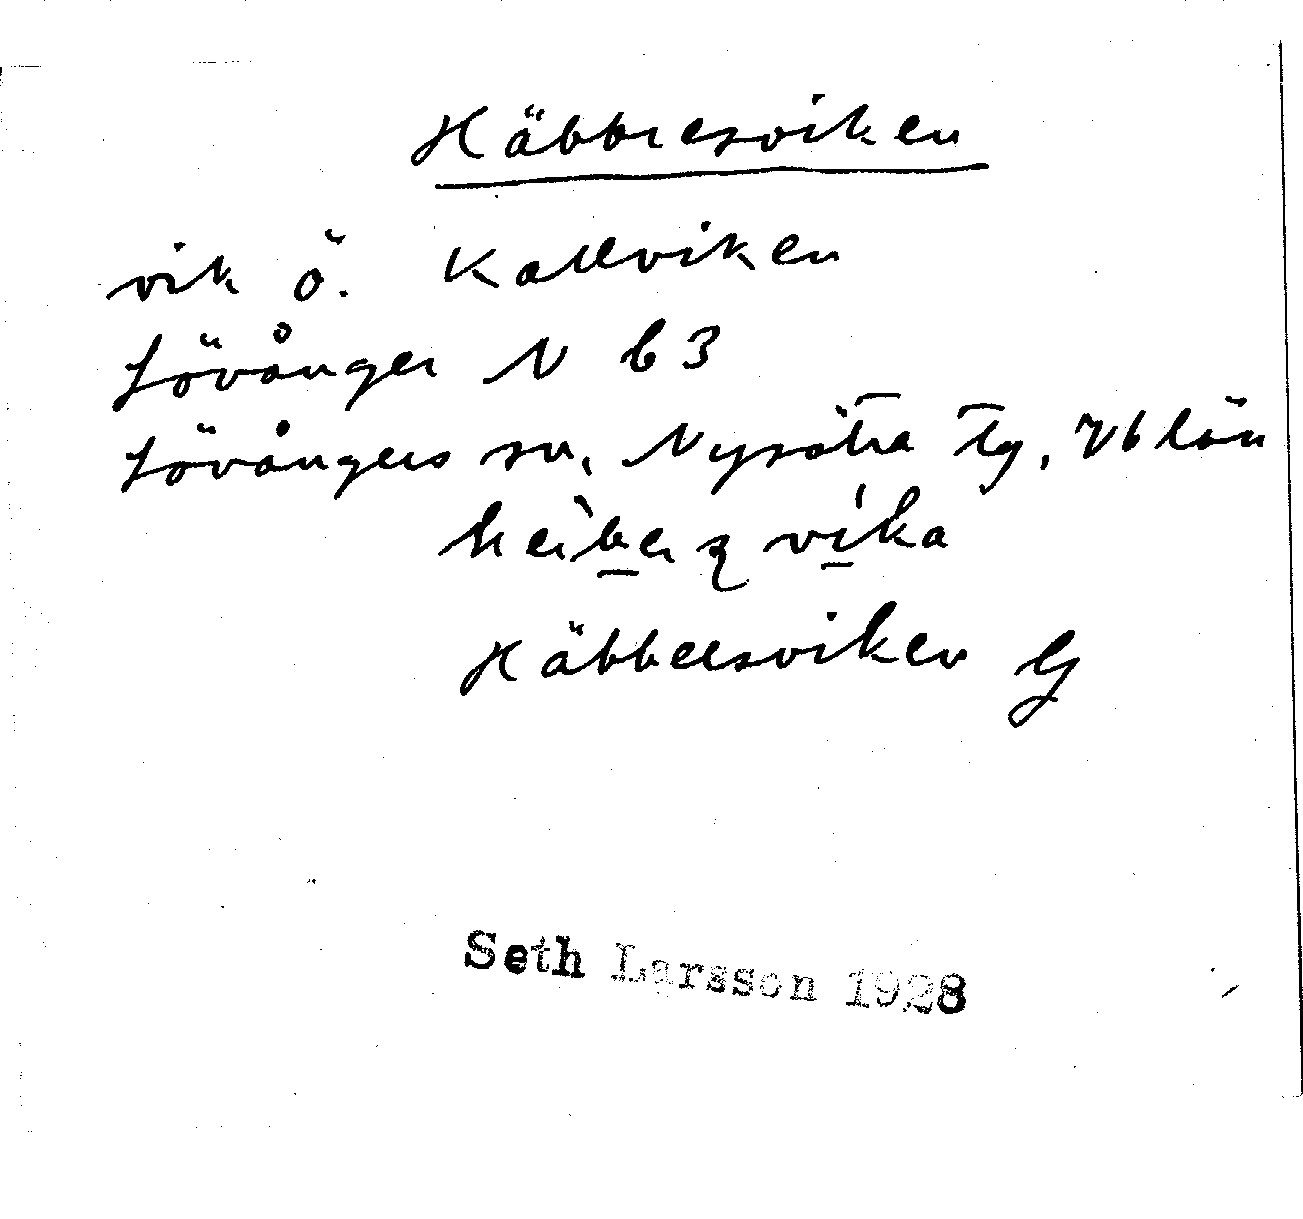 Häbbresviken
vik ö. Kallviken
Lövånger N b 3
Lövångers sn, Nysätra Tg, Vb län
vika
Häbbersviken G
Seth Larsson 1928